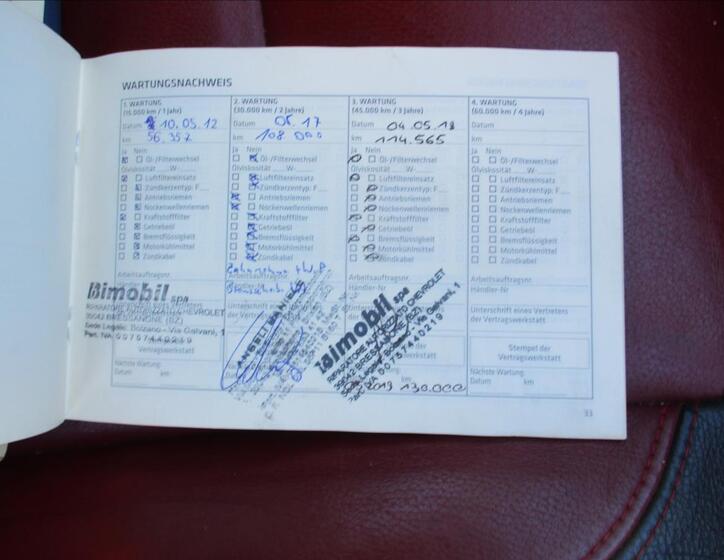 WARTUNGSNACHWEIS
1. WARTUNG
(15.000 km / 1 Jahr)
Datum 10.05.12
km 56.357
Ja Nein
Öl-/Filterwechsel
Ölviskosität W-
Luftfiltereinsatz
Zündkerzentyp: F
Antriebsriemen
Nockenwellenriemen
Kraftstofffilter
Getriebeöl
Bremsflüssigkeit
Motorkühlmittel
Zündkabel
Arbeitsauftragsnr.
Bimobil spa
RIPARATORE AUTORIZZATO CHEVROLET
39042 BRESSANONE (BZ)
Sede Legale: Bolzano - Via Galvani, 1
Part. IVA 00757440219
Vertragswerkstatt
Nächste Wartung:
Datum km
2. WARTUNG
(30.000 km / 2 Jahre)
Datum 05.17
km 108.000
Ja Nein
Öl-/Filterwechsel
Ölviskosität W-
Luftfiltereinsatz
Zündkerzentyp: F
Antriebsriemen
Nockenwellenriemen
Kraftstofffilter
Getriebeöl
Bremsflüssigkeit
Motorkühlmittel
Zündkabel
3. WARTUNG
(45.000 km / 3 Jahre)
Datum 04.05.18
km 114.565
Ja Nein
Öl-/Filterwechsel
Ölviskosität W-
Luftfiltereinsatz
Zündkerzentyp: F
Antriebsriemen
Nockenwellenriemen
Kraftstofffilter
Getriebeöl
Bremsflüssigkeit
Motorkühlmittel
Zündkabel
Arbeitsauftragsnr.
Händler-Nr
Bimobil spa
RIPARATORE AUTORIZZATO CHEVROLET
39042 BRESSANONE (BZ)
Sede Legale: Bolzano - Via Galvani, 1
Part. IVA 00757440219
2019 130.000
4. WARTUNG
(60.000 km / 4 Jahre)
Datum
km
Ja Nein
Öl-/Filterwechsel
Ölviskosität W-
Luftfiltereinsatz
Zündkerzentyp: F
Antriebsriemen
Nockenwellenriemen
Kraftstofffilter
Getriebeöl
Bremsflüssigkeit
Motorkühlmittel
Zündkabel
Arbeitsauftragsnr.
Händler-Nr
Unterschrift eines Vertreters
der Vertragswerkstatt
Stempel der
Vertragswerkstatt
Nächste Wartung:
Datum km
33